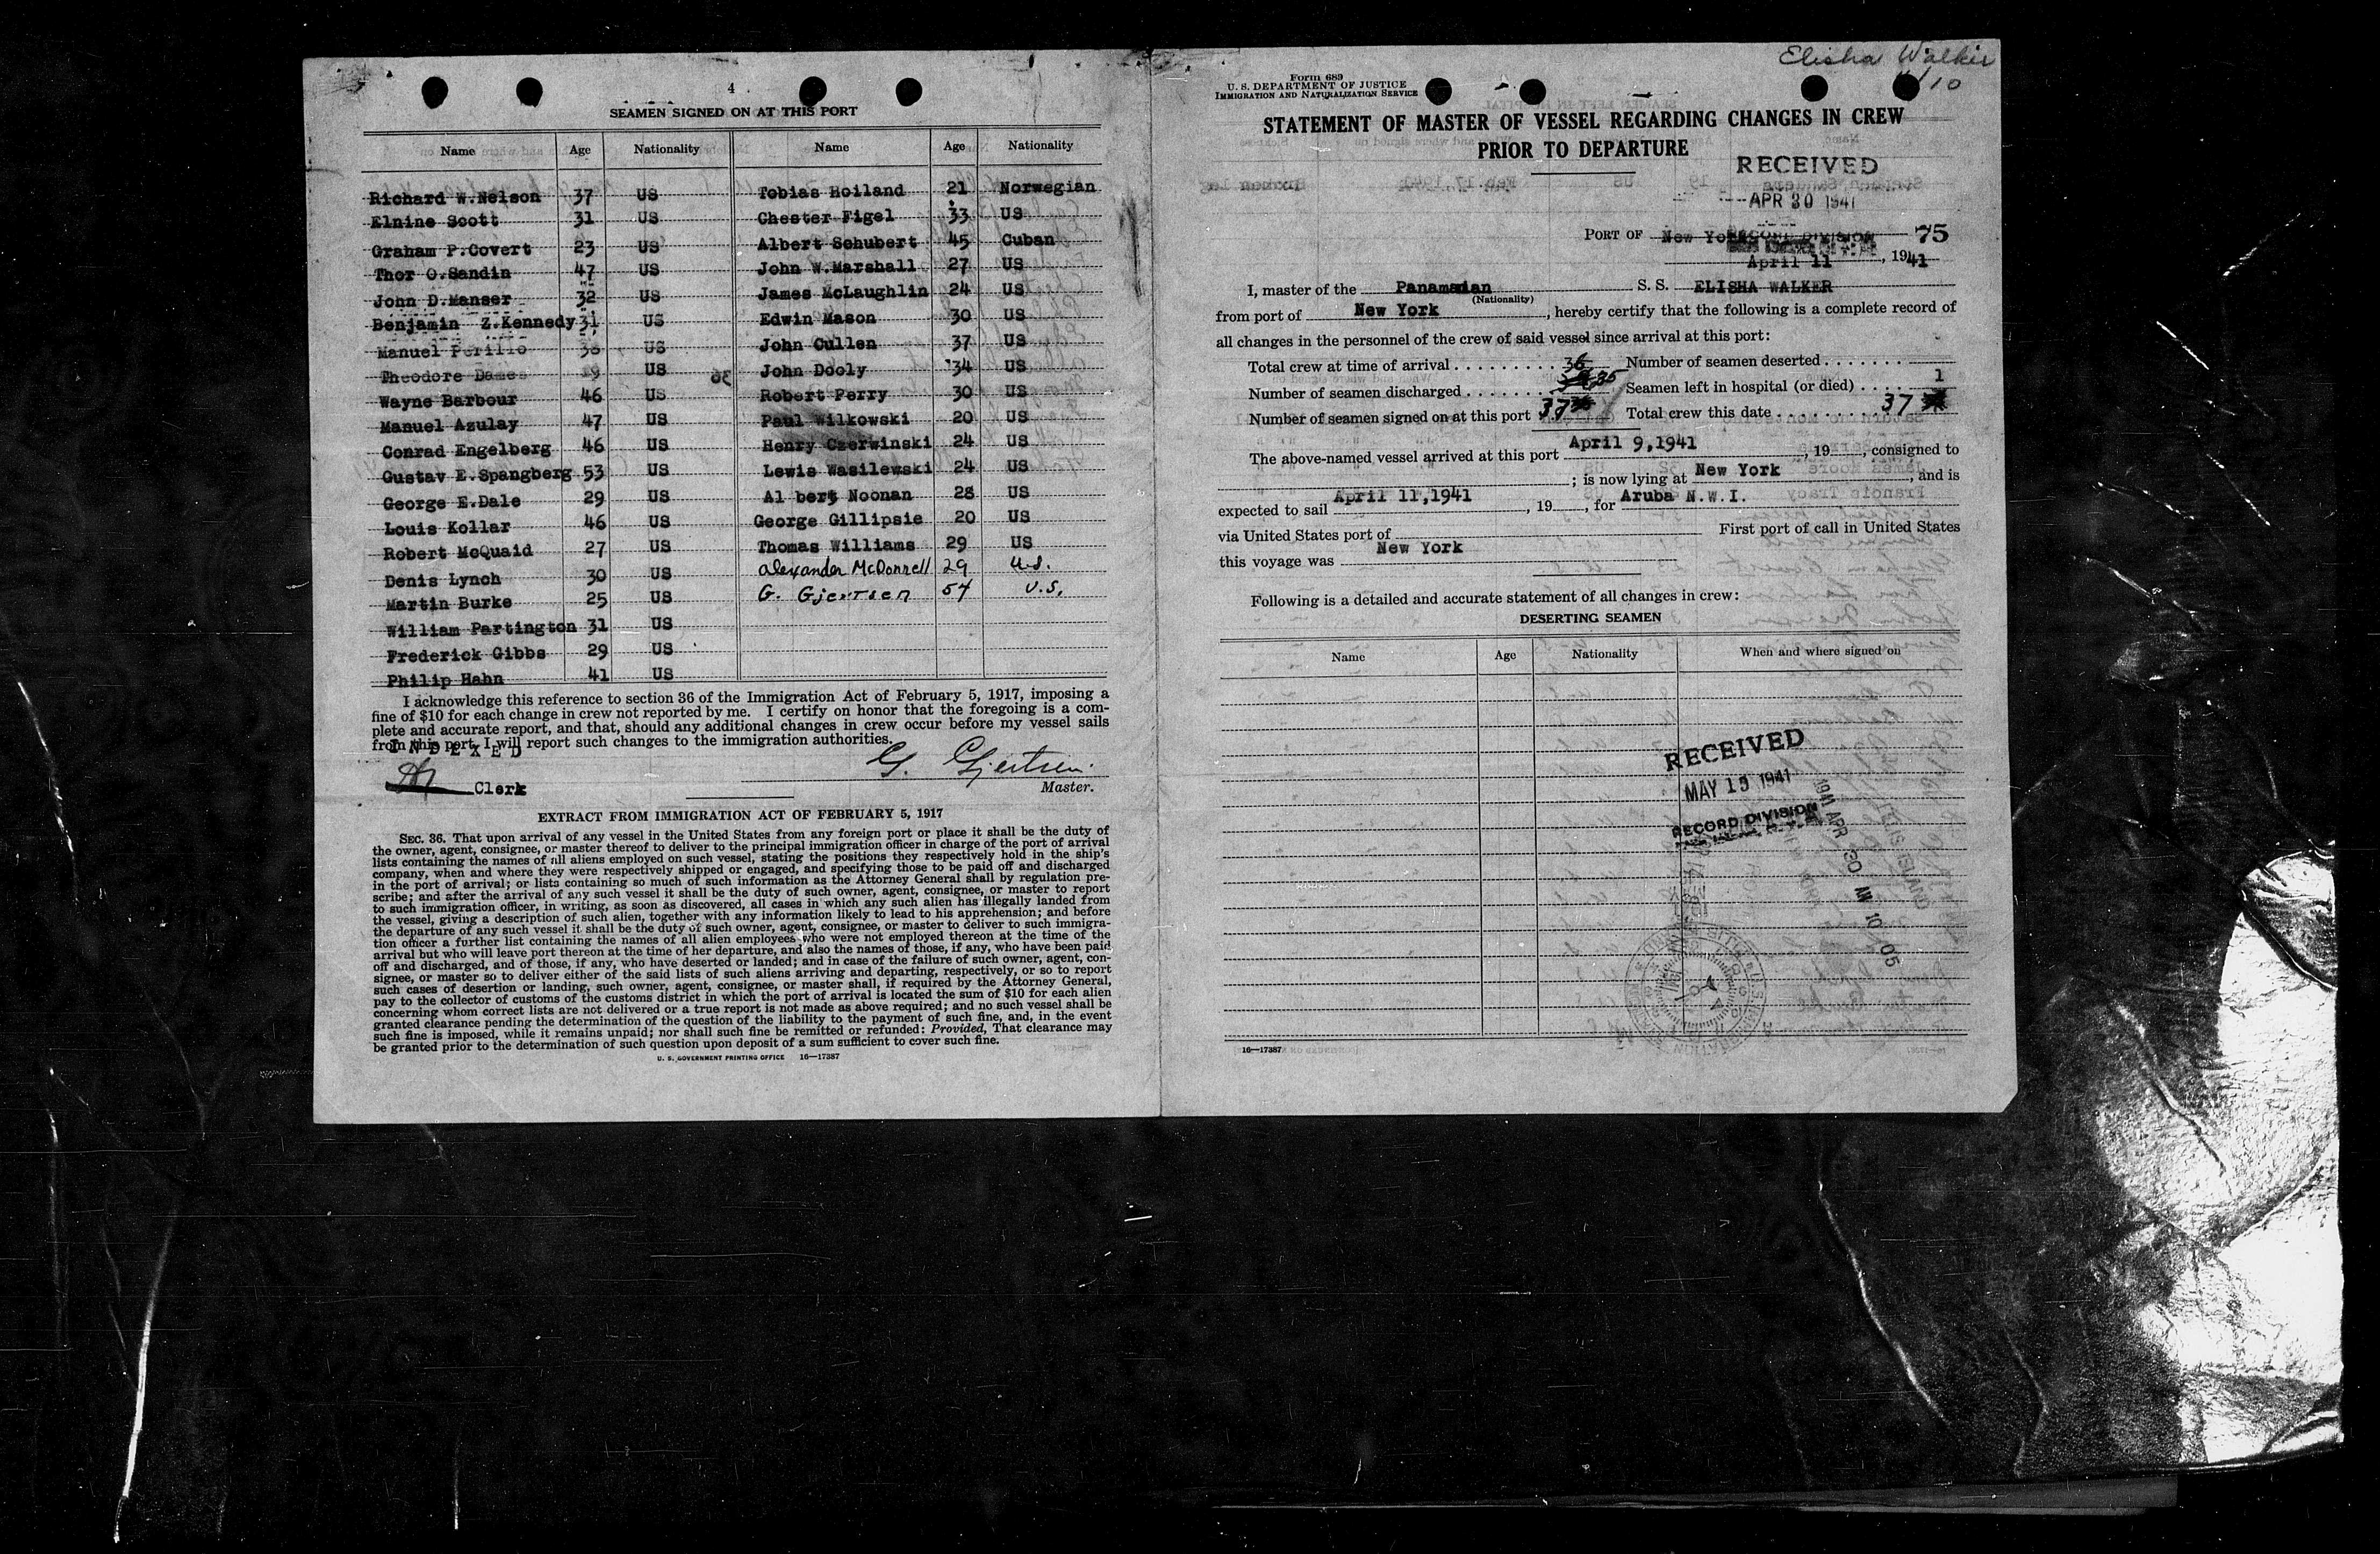 4
SEAMEN SIGNED ON AT THIS PORT
Name Age Nationality Name Age Nationality
Richard W.Nelson 37 US Tobias Hoiland 21 Norwegian
Elnine Scott 31 US Chester Figel 33 US
Graham P.Covert 23 US Albert Schubert 45 Cuban
Thor O.Sandin 47 US John W.Marshall 27 US
John D.Manser 32 US James McLaughlin 24 US
Benjamin Z.Kennedy 31 US Edwin Mason 30 US
Manuel Perillo 38 US John Cullen 37 US
Theodore Dames 19 US John Dooly 34 US
Wayne Barbour 46 US Robert Perry 30 US
Manuel Azulay 47 US Paul Wilkowski 20 US
Conrad Engelberg 46 US Henry Czerwinski 24 US
Gustav E.Spangberg 53 US Lewis Wasilewski 24 US
George E.Dale 29 US Al bert Noonan 28 US
Louis Kollar 46 US George Gillipsie 20 US
Robert McQuaid 27 US Thomas Williams 29 US
Denis Lynch 30 US Alexander McDonnell 29 U.S.
Martin Burke 25 US G. Gjertsen 54 U.S.
William Partington 31 US
Frederick Gibbs 29 US
Philip Hahn 41 US
I acknowledge this reference to section 36 of the Immigration Act of February 5, 1917, imposing a
fine of $10 for each change in crew not reported by me. I certify on honor that the foregoing is a com-
plete and accurate report, and that, should any additional changes in crew occur before my vessel sails
from this port, I will report such changes to the immigration authorities.
INDEXED
G. Gjertsen.
Clerk
Master.
EXTRACT FROM IMMIGRATION ACT OF FEBRUARY 5, 1917
SEC. 36. That upon arrival of any vessel in the United States from any foreign port or place it shall be the duty of
the owner, agent, consignee, or master thereof to deliver to the principal immigration officer in charge of the port of arrival
lists containing the names of all aliens employed on such vessel, stating the positions they respectively hold in the ship's
company, when and where they were respectively shipped or engaged, and specifying those to be paid off and discharged
in the port of arrival; or lists containing so much of such information as the Attorney General shall by regulation pre-
scribe; and after the arrival of any such vessel it shall be the duty of such owner, agent, consignee, or master to report
to such immigration officer, in writing, as soon as discovered, all cases in which any such alien has illegally landed from
the vessel, giving a description of such alien, together with any information likely to lead to his apprehension; and before
the departure of any such vessel it shall be the duty of such owner, agent, consignee, or master to deliver to such immigra-
tion officer a further list containing the names of all alien employees who were not employed thereon at the time of the
arrival but who will leave port thereon at the time of her departure, and also the names of those, if any, who have been paid
off and discharged, and of those, if any, who have deserted or landed; and in case of the failure of such owner, agent, con-
signee, or master so to deliver either of the said lists of such aliens arriving and departing, respectively, or so to report
such cases of desertion or landing, such owner, agent, consignee, or master shall, if required by the Attorney General,
pay to the collector of customs of the customs district in which the port of arrival is located the sum of $10 for each alien
concerning whom correct lists are not delivered or a true report is not made as above required; and no such vessel shall be
granted clearance pending the determination of the question of the liability to the payment of such fine, and, in the event
such fine is imposed, while it remains unpaid; nor shall such fine be remitted or refunded: Provided, That clearance may
be granted prior to the determination of such question upon deposit of a sum sufficient to cover such fine.
U. S. GOVERNMENT PRINTING OFFICE 16—17387
Elisha Walker
4/10
Form 689
U. S. DEPARTMENT OF JUSTICE
IMMIGRATION AND NATURALIZATION SERVICE
STATEMENT OF MASTER OF VESSEL REGARDING CHANGES IN CREW
PRIOR TO DEPARTURE
RECEIVED
APR 30 1941
RECORD DIVISION
PORT OF New York 75
April 11, 1941
I, master of the Panamaian S. S. ELISHA WALKER
(Nationality)
from port of New York, hereby certify that the following is a complete record of
all changes in the personnel of the crew of said vessel since arrival at this port:
Total crew at time of arrival 36 Number of seamen deserted
Number of seamen discharged 35 Seamen left in hospital (or died) 1
Number of seamen signed on at this port 37 Total crew this date 37
The above-named vessel arrived at this port April 9,1941, 19, consigned to
; is now lying at New York, and is
expected to sail April 11,1941, 19, for Aruba N.W.I.
via United States port of First port of call in United States
this voyage was New York
Following is a detailed and accurate statement of all changes in crew:
DESERTING SEAMEN
Name Age Nationality When and where signed on
RECEIVED
MAY 19 1941
RECORD DIVISION
1941 APR 30 AM 10 05
ELLIS ISLAND
16—17387